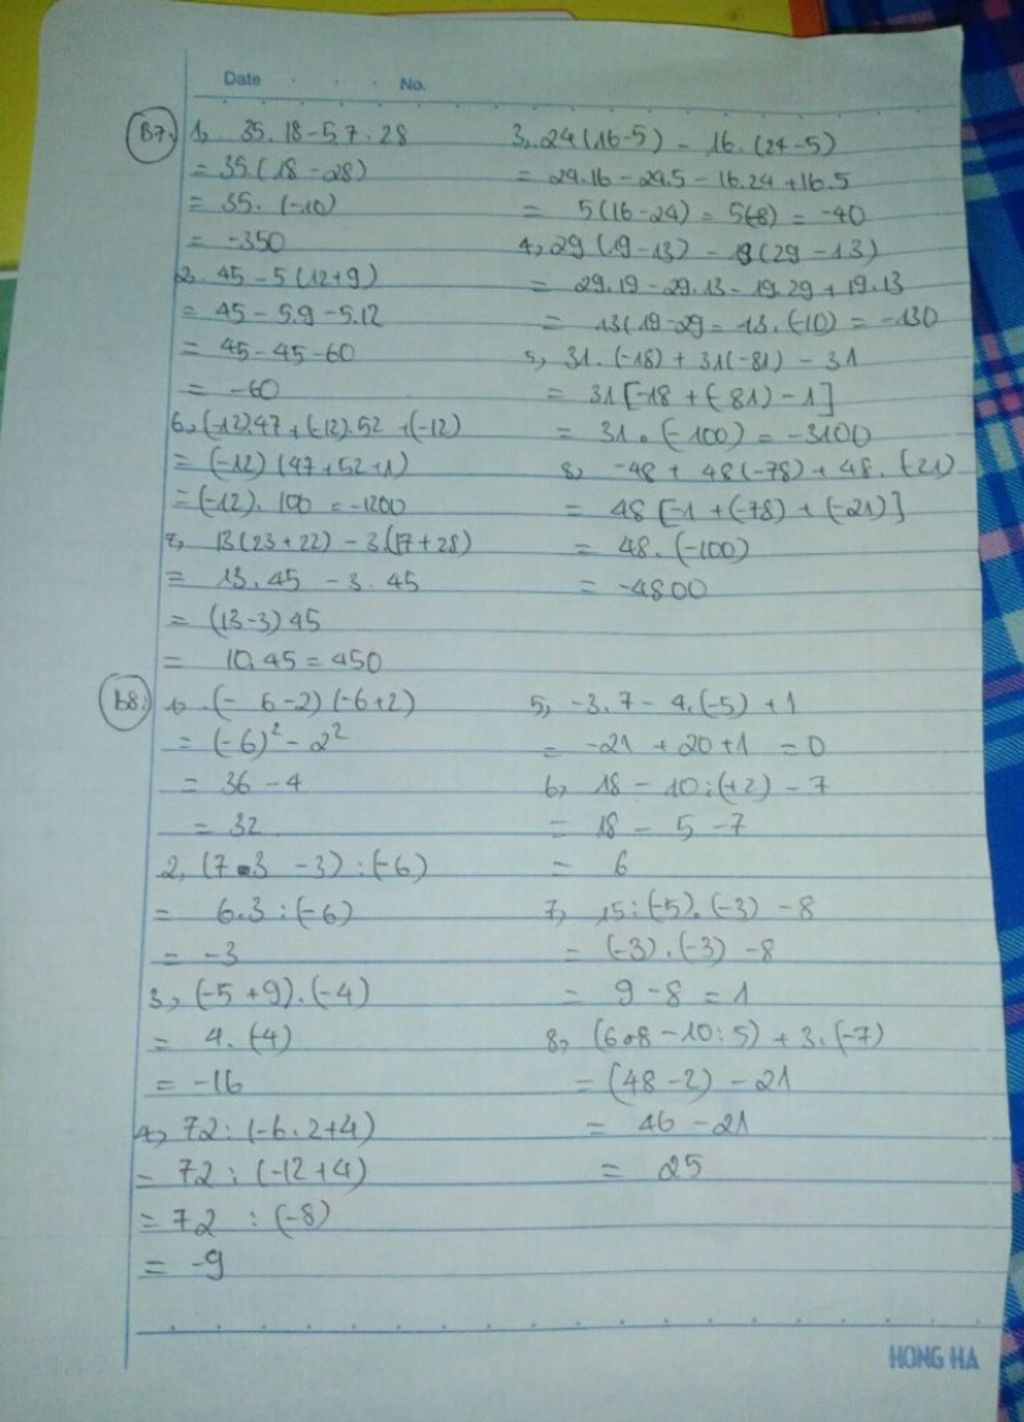 Date No.
B7. 1, 35.18-5.7.28
= 35.(18-28)
= 35. (-10)
= -350
2. 45-5(12+9)
= 45-5.9-5.12
= 45-45-60
= -60
6, (-12).47+(-12).52+(-12)
= (-12)(47+52+1)
= (-12). 100 = -1200
7, 13(23+22)-3.(17+28)
= 13.45 - 3.45
= (13-3)45
= 10.45 = 450
3, 24(16-5) - 16.(24-5)
= 24.16-24.5-16.24+16.5
= 5(16-24) = 5(-8) = -40
4, 29(19-13) - 19(29-13)
= 29.19-29.13-19.29+19.13
= 13(19-29 = 13.(-10) = -130
5, 31.(-18)+31(-81)-31
= 31[-18+(-81)-1]
= 31.(-100) = -3100
8, -48+48(-78)+48.(-21)
= 48[-1+(-78)+(-21)]
= 48.(-100)
= -4800
B8: 1, (-6-2)(-6+2)
= (-6)²-2²
= 36-4
= 32
2, (7.3-3):(-6)
= 6.3:(-6)
= -3
3, (-5+9).(-4)
= 4.(-4)
= -16
4, 72:(-6.2+4)
= 72:(-12+4)
= 72 : (-8)
= -9
5, -3.7-4.(-5)+1
= -21+20+1 = 0
6, 18-10:(+2)-7
= 18-5-7
= 6
7, 15:(-5).(-3)-8
= (-3).(-3)-8
= 9-8 = 1
8, (6.8-10:5)+3.(-7)
= (48-2)-21
= 46-21
= 25
HONG HA